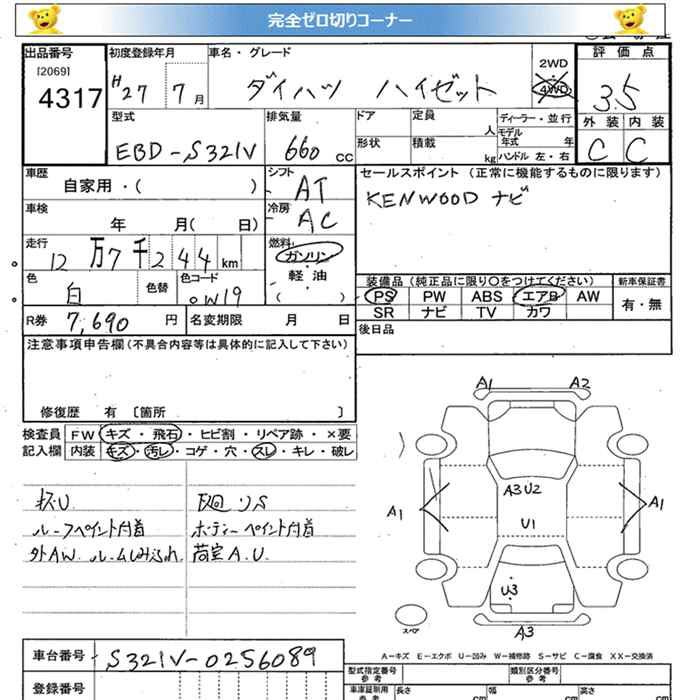 完全ゼロ切りコーナー
出品番号 初度登録年月 車名・グレード 2WD 4WD 評価点
[2069]
4317 H27 7月 ダイハツ ハイゼット 3.5
型式 排気量 ドア 定員 人 ディーラー・並行 外装 内装
モデル年式 年
EBD-S321V 660 cc 形状 積載 kg ハンドル 左・右 C C
車歴 シフト セールスポイント (正常に機能するものに限ります)
自家用・( ) AT KENWOOD ナビ
車検 冷房
年 月( 日) AC
走行 燃料
12万7千244km ガソリン
色 色替 色コード 軽・油 装備品 (純正品に限り○をつけてください) 新車保証書
白 W19 ( ) PS PW ABS エアB AW 有・無
SR ナビ TV カワ
R券 7,690円 名変期限 月 日 後日品
注意事項申告欄 (不具合内容等は具体的に記入して下さい)
修復歴 有 [箇所 ]
検査員 FW キズ・飛石・ヒビ割・リペア跡・×要
記入欄 内装 キズ・汚レ・コゲ・穴・スレ・キレ・破レ
ルーフペイント付着 ボディーペイント付着
外AW. 荷室A.U.
A1 A2
A3 U2
A1 A1
U1
U3
スペア A3
A-キズ E-エクボ U-凹み W-補修跡 S-サビ C-腐食 XX-交換済
車台番号 S321V-0256089
型式指定番号 参考 類別区分番号 参考
登録番号 車庫証明用 参考 長さ cm 幅 cm 高さ cm